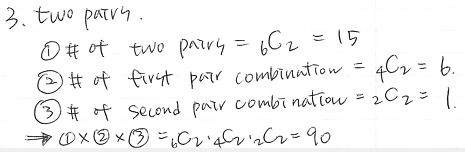 3. two pairs.
① # of two pairs = ₆C₂ = 15
② # of first pair combination = ₄C₂ = 6.
③ # of second pair combination = ₂C₂ = 1.
⇒ ① × ② × ③ = ₆C₂ · ₄C₂ · ₂C₂ = 90